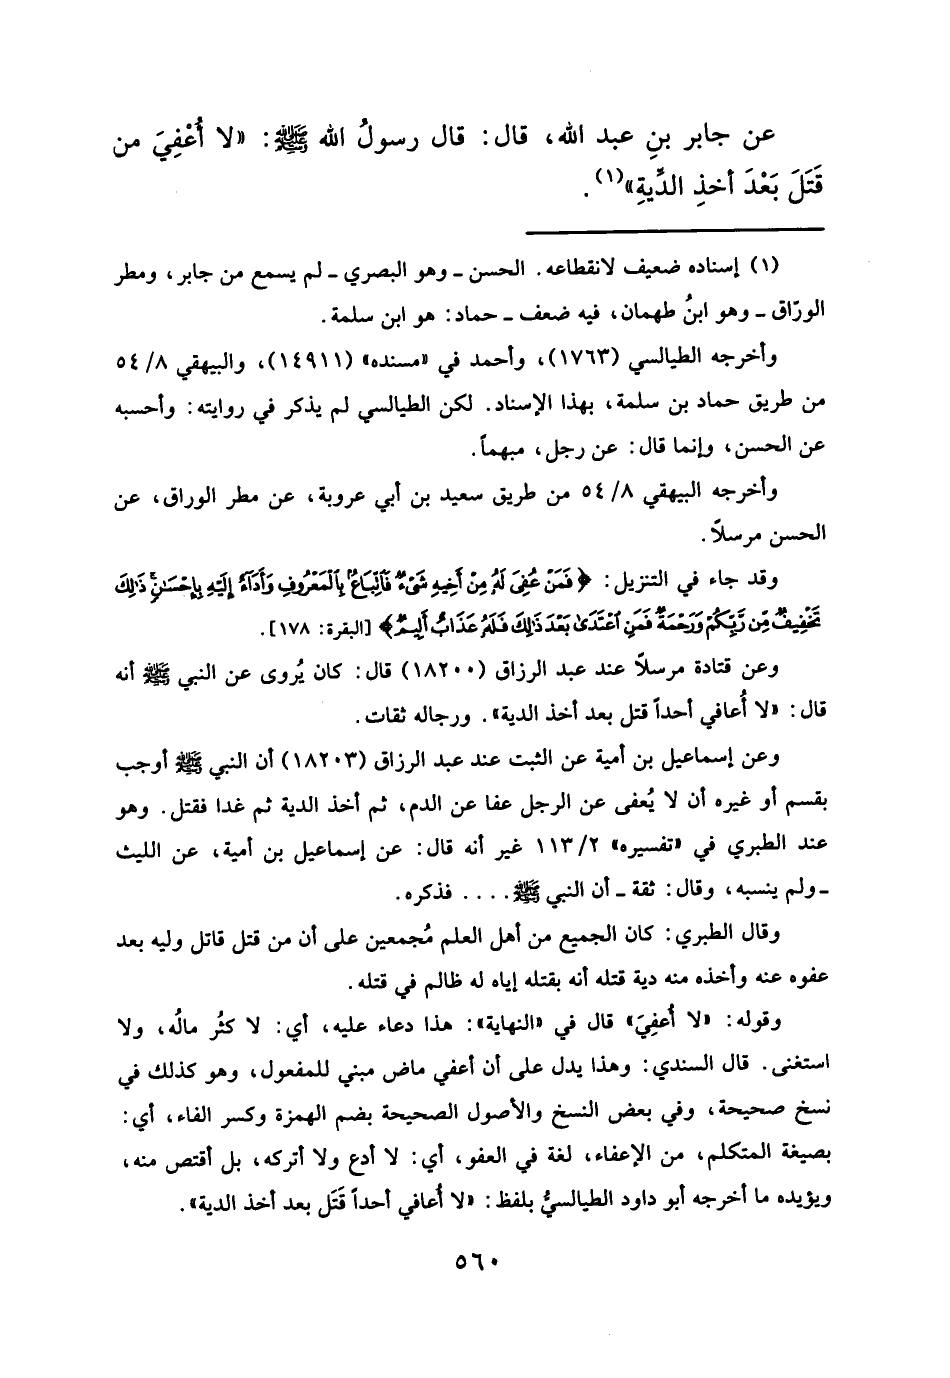 عن جابر بنِ عبد الله، قال: قال رسولُ الله ﷺ: «لا أُعْفِيَ من
قَتَلَ بَعْدَ أخذِ الدِّيةِ»(١).
(١) إسناده ضعيف لانقطاعه. الحسن ـ وهو البصري ـ لم يسمع من جابر، ومطر
الورّاق ـ وهو ابنُ طهمان، فيه ضعف ـ حماد: هو ابن سلمة.
وأخرجه الطيالسي (١٧٦٣)، وأحمد في «مسنده» (١٤٩١١)، والبيهقي ٨/ ٥٤
من طريق حماد بن سلمة، بهذا الإسناد. لكن الطيالسي لم يذكر في روايته: وأحسبه
عن الحسن، وإنما قال: عن رجل، مبهماً.
وأخرجه البيهقي ٨/ ٥٤ من طريق سعيد بن أبي عروبة، عن مطر الوراق، عن
الحسن مرسلاً.
وقد جاء في التنزيل: ﴿فَمَنْ عُفِىَ لَهُۥ مِنْ أَخِيهِ شَىْءٌ فَٱتِّبَاعٌۢ بِٱلْمَعْرُوفِ وَأَدَآءٌ إِلَيْهِ بِإِحْسَٰنٍ ۗ ذَٰلِكَ
تَخْفِيفٌ مِّن رَّبِّكُمْ وَرَحْمَةٌ ۗ فَمَنِ ٱعْتَدَىٰ بَعْدَ ذَٰلِكَ فَلَهُۥ عَذَابٌ أَلِيمٌ﴾ [البقرة: ١٧٨].
وعن قتادة مرسلاً عند عبد الرزاق (١٨٢٠٠) قال: كان يُروى عن النبي ﷺ أنه
قال: «لا أُعافي أحداً قتل بعد أخذ الدية». ورجاله ثقات.
وعن إسماعيل بن أمية عن الثبت عند عبد الرزاق (١٨٢٠٣) أن النبي ﷺ أوجب
بقسم أو غيره أن لا يُعفى عن الرجل عفا عن الدم، ثم أخذ الدية ثم غدا فقتل. وهو
عند الطبري في «تفسيره» ٢/ ١١٣ غير أنه قال: عن إسماعيل بن أمية، عن الليث
ـ ولم ينسبه، وقال: ثقة ـ أن النبي ﷺ.... فذكره.
وقال الطبري: كان الجميع من أهل العلم مُجمعين على أن من قتل قاتل وليه بعد
عفوه عنه وأخذه منه دية قتله أنه بقتله إياه له ظالم في قتله.
وقوله: «لا أُعفِيَ» قال في «النهاية»: هذا دعاء عليه، أي: لا كثُر مالُه، ولا
استغنى. قال السندي: وهذا يدل على أن أعفي ماض مبني للمفعول، وهو كذلك في
نسخ صحيحة، وفي بعض النسخ والأصول الصحيحة بضم الهمزة وكسر الفاء، أي:
بصيغة المتكلم، من الإعفاء، لغة في العفو، أي: لا أدع ولا أتركه، بل أقتص منه،
ويؤيده ما أخرجه أبو داود الطيالسيُّ بلفظ: «لا أُعافي أحداً قَتَل بعد أخذ الدية».
٥٦٠